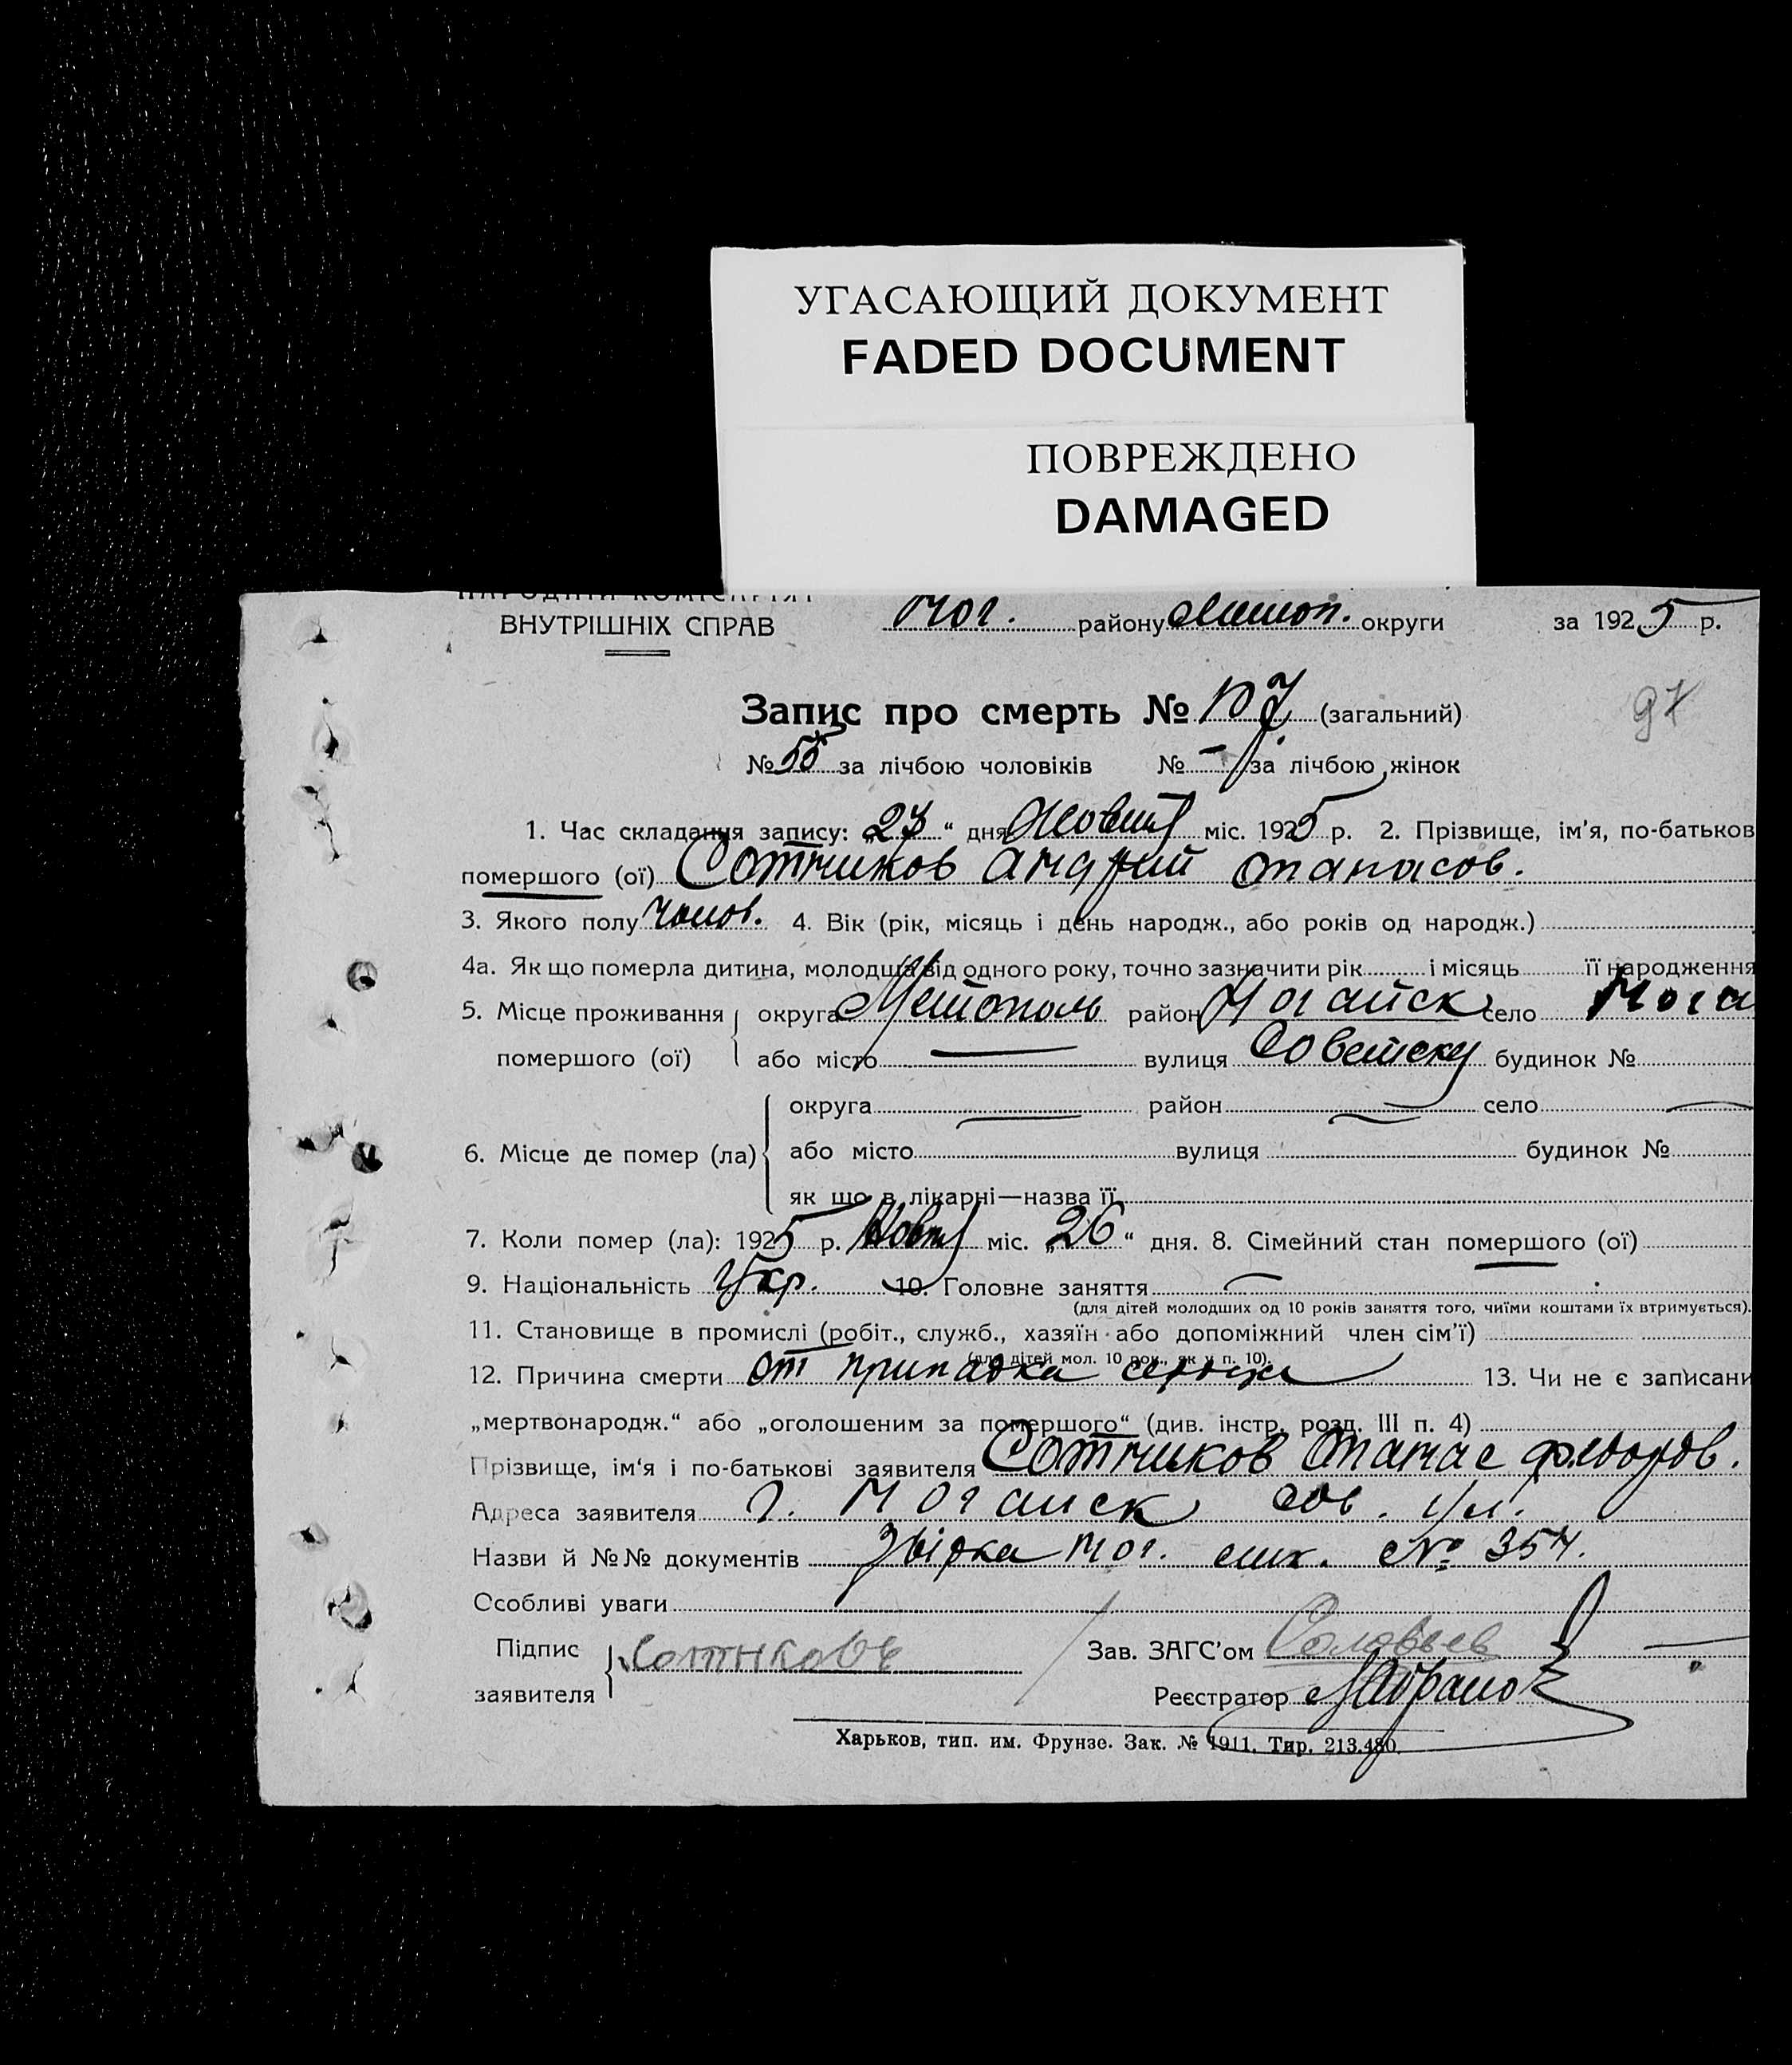 УГАСАЮЩИЙ ДОКУМЕНТ
FADED DOCUMENT
ПОВРЕЖДЕНО
DAMAGED
НАРОДНИЙ КОМІСАРІЯТ
ВНУТРІШНІХ СПРАВ
Ног. району Мелітоп. округи за 1925 р.
Запис про смерть № 107 (загальний)
97
№ 55 за лічбою чоловіків № – за лічбою жінок
1. Час складання запису: „27“ дня Жовтня міс. 1925 р. 2. Прізвище, ім'я, по-батьков
помершого (ої) Сотников Андрий Опанасов.
3. Якого полу Чолов. 4. Вік (рік, місяць і день народж., або років од народж.)
4а. Як що померла дитина, молодша від одного року, точно зазначити рік і місяць її народження
5. Місце проживання округа Мелітополь район Ногайск село Нога
помершого (ої) або місто — вулиця Советску будинок №
округа — район — село —
6. Місце де помер (ла) або місто вулиця будинок №
як що в лікарні—назва її
7. Коли помер (ла): 1925 р. Жовтня міс. „26“ дня. 8. Сімейний стан помершого (ої)
9. Національність Укр. 10. Головне заняття —
(для дітей молодших од 10 років заняття того, чиїми коштами їх втримується).
11. Становище в промислі (робіт., служб., хазяїн або допоміжний член сім'ї)
(для дітей мол. 10 рок., як у п. 10).
12. Причина смерти от припадка сердца 13. Чи не є записани
„мертвонародж.“ або „оголошеним за помершого“ (див. інстр. розд. III п. 4)
Прізвище, ім'я і по-батькові заявителя Сотников Опанас Федоров.
Адреса заявителя г. Ногайск Сов. ул.
Назви й №№ документів Ног. № 354.
Особливі уваги
Підпис Сотниковъ Зав. ЗАГС'ом Соловьев
заявителя Реєстратор
Харьков, тип. им. Фрунзе. Зак. № 1911. Тир. 213.480.